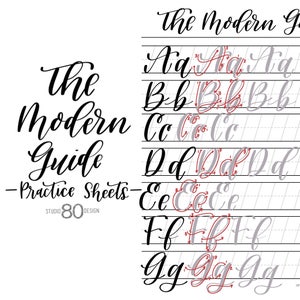 The
Modern
Guide
-Practice Sheets-
STUDIO 80 DESIGN
The Modern G
Aa Aa Aa
Bb Bb Bb
Cc Cc Cc
Dd Dd Dd
Ee Ee Ee
Ff Ff Ff
Gg Gg Gg